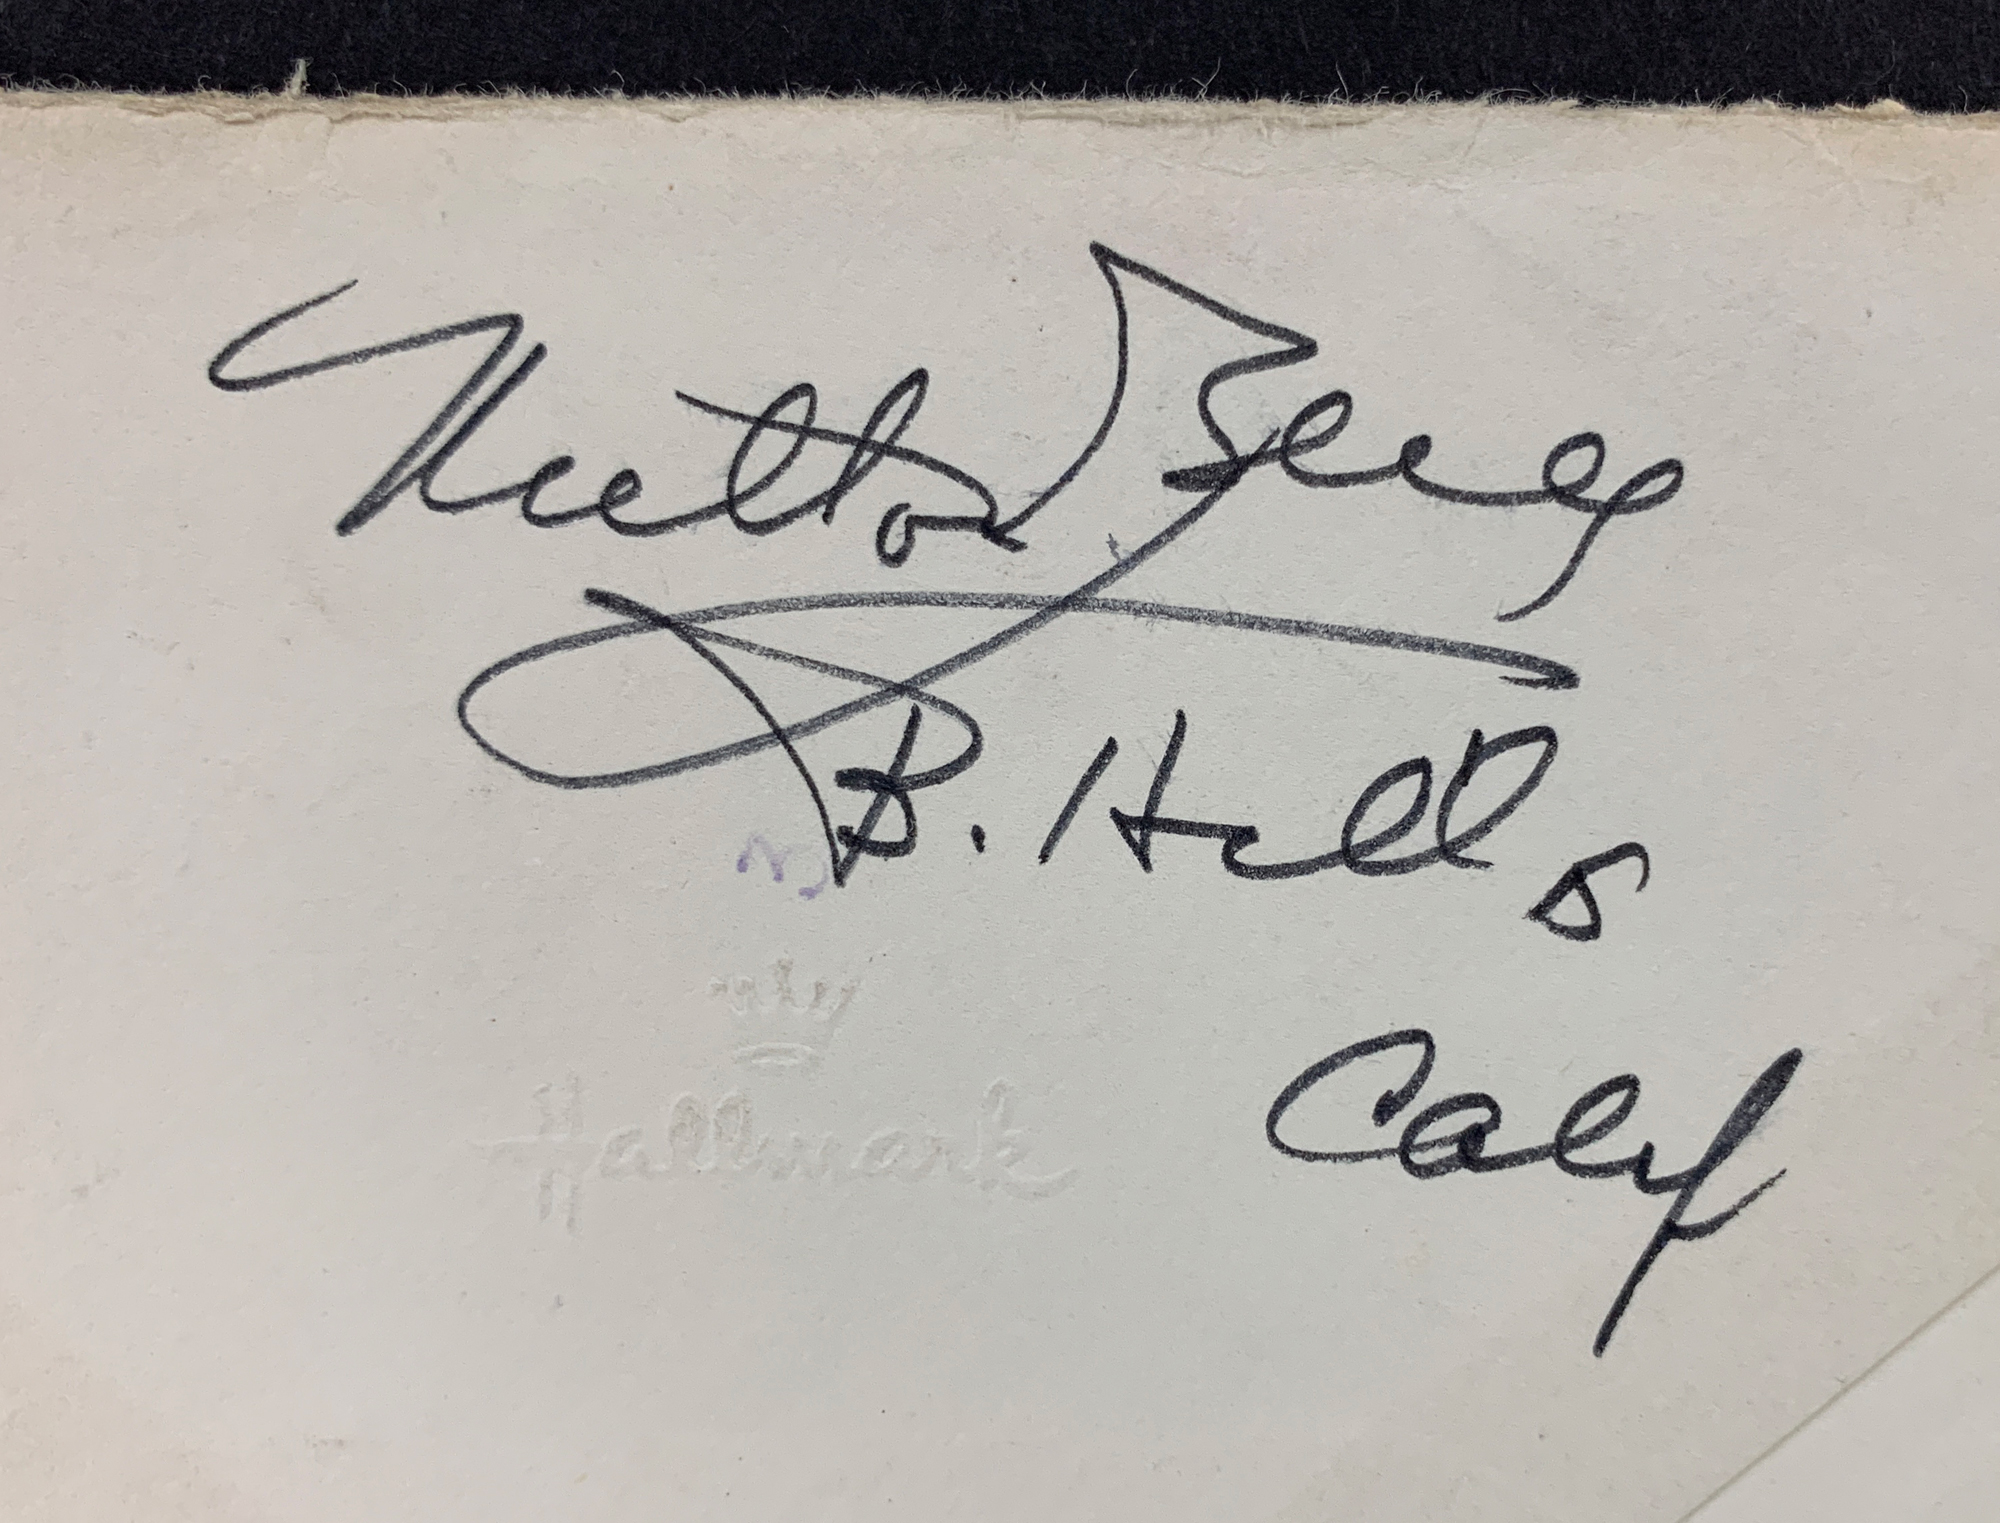 Milton Berle
B. Hills
Calif
Hallmark